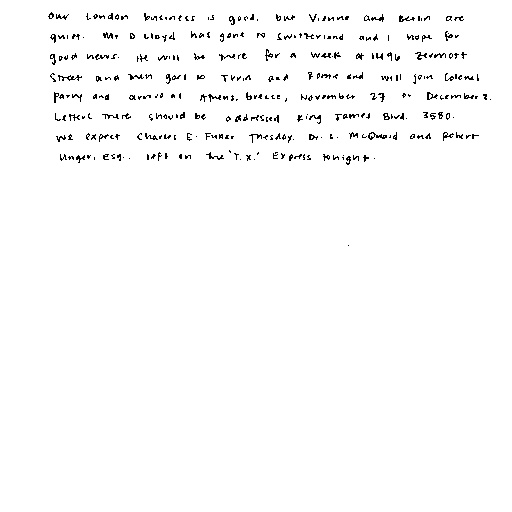 Our London business is good, but Vienna and Berlin are
quiet. Mr D Lloyd has gone to Switzerland and I hope for
good news. He will be there for a week at 1496 Zermott
Street and then goes to Turin and Rome and will join Colonel
Parry and arrive at Athens, Greece, November 27 or December 2.
Letters there should be addressed King James Blvd. 3580.
We expect Charles E. Fuller Tuesday. Dr. L. McQuaid and Robert
Unger, Esq., left on the "T.X." Express tonight.